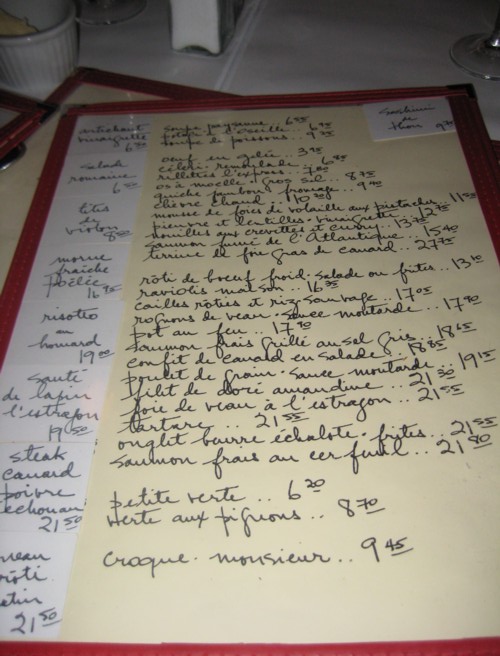 artichaut
vinaigrette
6 50
salade
romaine
6 50
têtes
de
violon
8 00
morue
fraîche
poêlée
16 95
risotto
au
homard
19 00
Sauté
de lapin
l'estragon
19 50
steak
canard
poivre
21 50
veau
rôti
21 50
Sashimi
de
thon
soupe paysanne.. 6 55
potage d'oseille.. 6 90
soupe de poissons.. 9 55
oeuf en gelée.. 3 95
céleri rémoulade.. 6 80
rillettes l'express.. 7 00
os à moelle. gros sel.. 8 95
quiche jambon fromage.. 9 40
chèvre chaud.. 10 30
mousse de foies de volaille aux pistaches.. 11 50
pieuvre et lentilles. vinaigrette.. 12 70
nouilles aux crevettes et curry.. 13 70
saumon fumé de l'Atlantique.. 15 40
terrine de foie gras de canard.. 27 75
rôti de boeuf froid. salade ou frites.. 13 10
raviolis maison.. 16 35
cailles roties et riz sauvage.. 17 05
rognons de veau. sauce moutarde.. 17 90
pot au feu.. 17 90
saumon frais grillé au sel gris.. 18 65
confit de canard en salade.. 18 85
poulet de grain. sauce moutarde.. 19 15
filet de doré amandine.. 21 30
foie de veau à l'estragon.. 21 55
tartare.. 21 55
onglet beurre échalote. frites.. 21 55
saumon frais au cerfeuil.. 21 80
petite verte.. 6 20
verte aux pignons.. 8 70
croque. monsieur.. 9 45